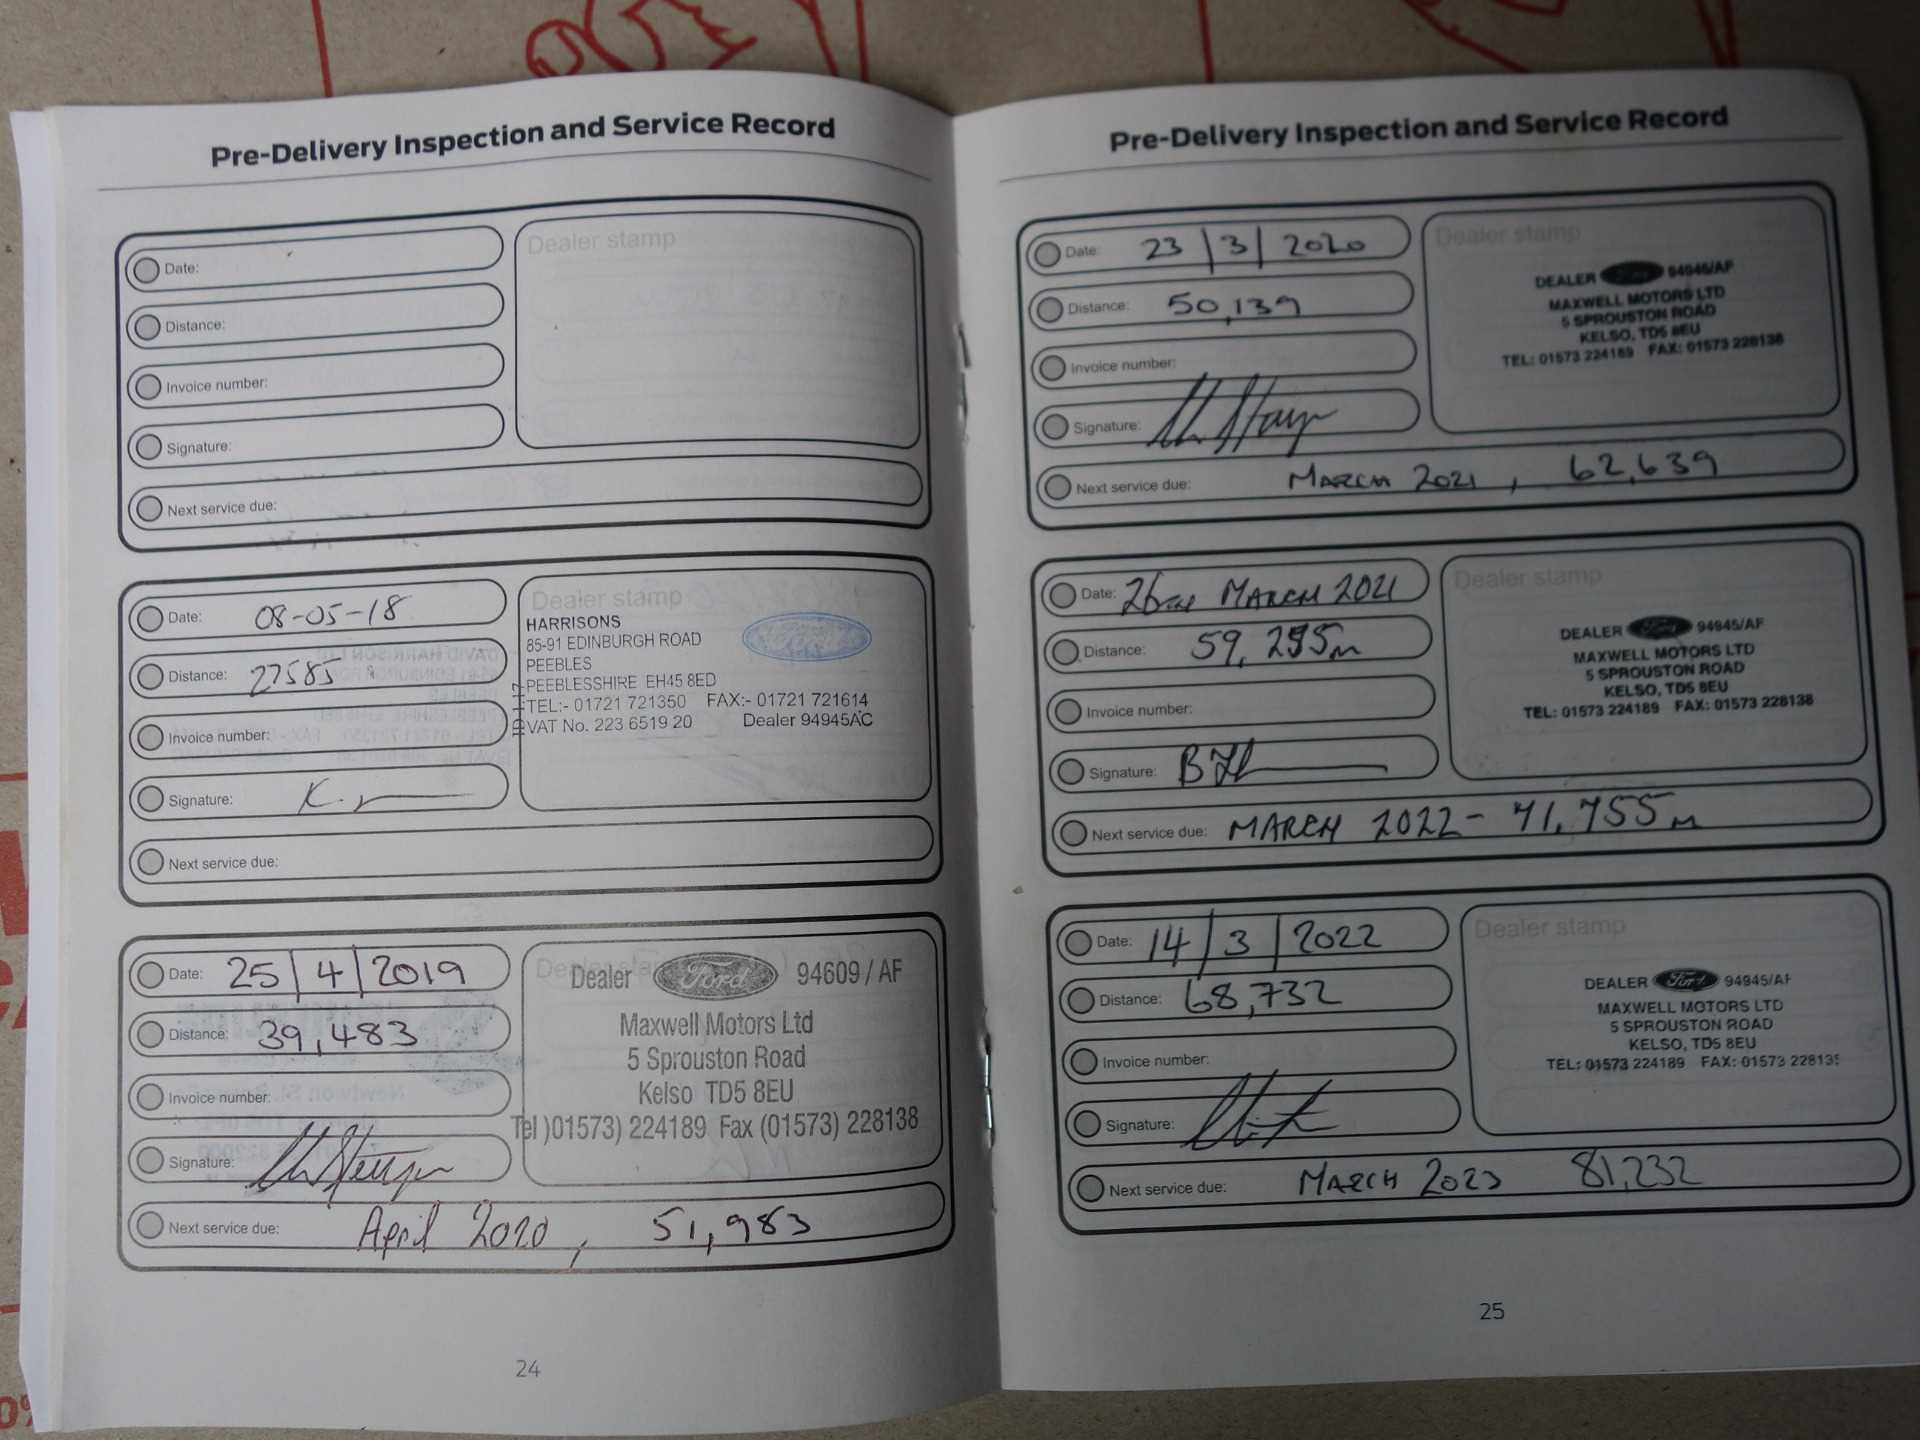 Pre-Delivery Inspection and Service Record
Date:
Dealer stamp
Distance:
Invoice number:
Signature:
Next service due:
Date: 08-05-18
Dealer stamp
HARRISONS
85-91 EDINBURGH ROAD
PEEBLES
PEEBLESSHIRE EH45 8ED
TEL:- 01721 721350 FAX:- 01721 721614
VAT No. 223 6519 20 Dealer 94945AC
Distance: 27585
Invoice number:
Signature:
Next service due:
Date: 25/4/2019
Dealer Ford 94609/AF
Maxwell Motors Ltd
5 Sprouston Road
Kelso TD5 8EU
Tel )01573) 224189 Fax (01573) 228138
Distance: 39,483
Invoice number:
Signature:
Next service due: April 2020, 51,983
24
Pre-Delivery Inspection and Service Record
Date: 23/3/2020
Dealer stamp
DEALER Ford 94945/AF
MAXWELL MOTORS LTD
5 SPROUSTON ROAD
KELSO, TD5 8EU
TEL: 01573 224189 FAX: 01573 228138
Distance: 50,139
Invoice number:
Signature:
Next service due: MARCH 2021, 62,639
Date: 26TH MARCH 2021
Dealer stamp
DEALER Ford 94945/AF
MAXWELL MOTORS LTD
5 SPROUSTON ROAD
KELSO, TD5 8EU
TEL: 01573 224189 FAX: 01573 228138
Distance: 59,255m
Invoice number:
Signature:
Next service due: MARCH 2022 - 71,755m
Date: 14/3/2022
Dealer stamp
DEALER Ford 94945/AF
MAXWELL MOTORS LTD
5 SPROUSTON ROAD
KELSO, TD5 8EU
TEL: 01573 224189 FAX: 01573 228138
Distance: 68,732
Invoice number:
Signature:
Next service due: MARCH 2023 81,232
25